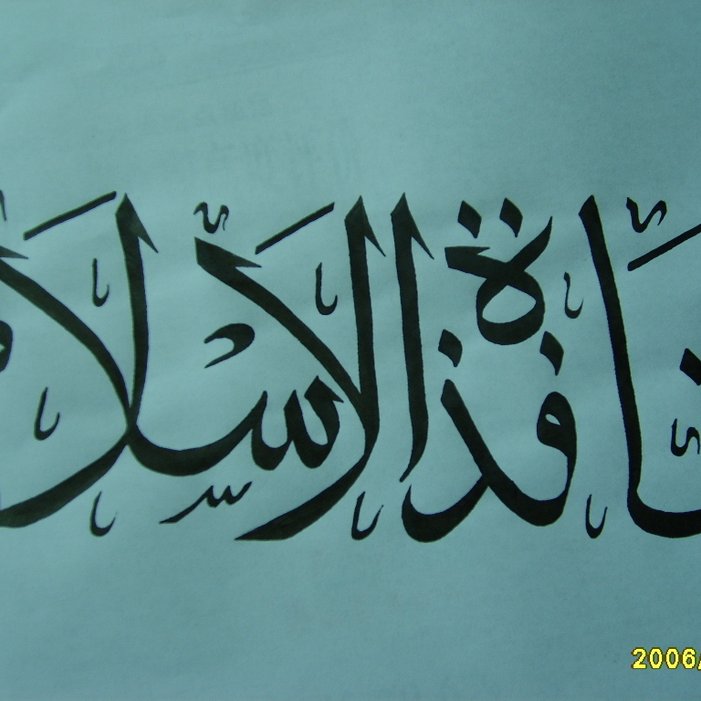 نافذة الاسلام
2006/